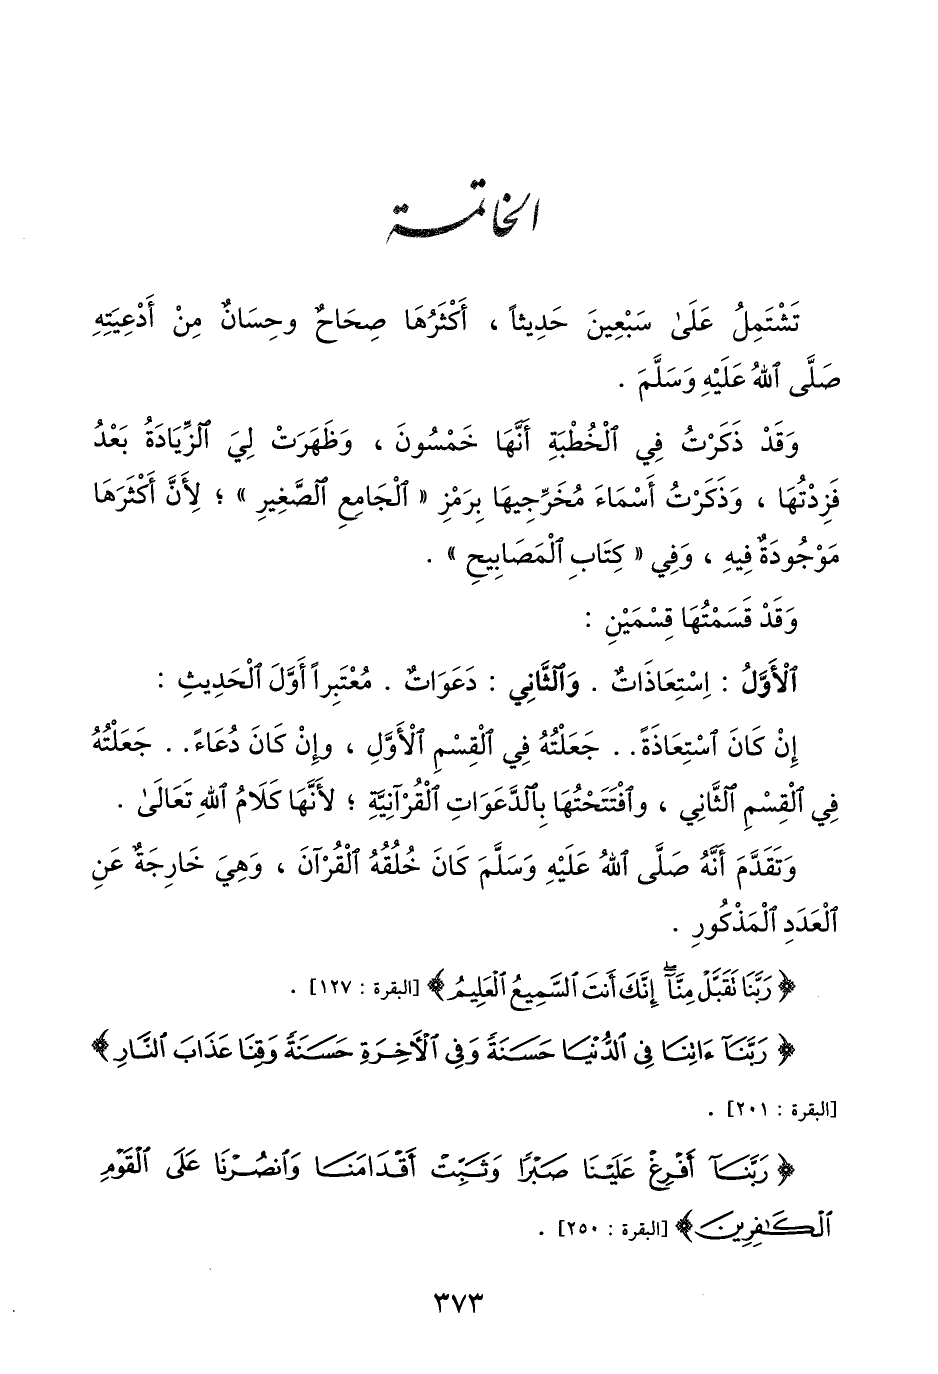 الخاتمة
تَشْتَمِلُ عَلَىٰ سَبْعِينَ حَدِيثاً ، أَكْثَرُهَا صِحَاحٌ وحِسَانٌ مِنْ أَدْعِيَتِهِ
صَلَّى ٱللهُ عَلَيْهِ وَسَلَّمَ .
وَقَدْ ذَكَرْتُ فِي ٱلْخُطْبَةِ أَنَّهَا خَمْسُونَ ، وَظَهَرَتْ لِيَ ٱلزِّيَادَةُ بَعْدُ
فَزِدْتُهَا ، وَذَكَرْتُ أَسْمَاءَ مُخَرِّجِيهَا بِرَمْزِ « ٱلْجَامِعِ ٱلصَّغِيرِ » ؛ لِأَنَّ أَكْثَرَهَا
مَوْجُودَةٌ فِيهِ ، وَفِي « كِتَابِ ٱلْمَصَابِيحِ » .
وَقَدْ قَسَمْتُهَا قِسْمَيْنِ :
ٱلْأَوَّلُ : اِسْتِعَاذَاتٌ . وَٱلثَّانِي : دَعَوَاتٌ . مُعْتَبِراً أَوَّلَ ٱلْحَدِيثِ :
إِنْ كَانَ ٱسْتِعَاذَةً . . جَعَلْتُهُ فِي ٱلْقِسْمِ ٱلْأَوَّلِ ، وإِنْ كَانَ دُعَاءً . . جَعَلْتُهُ
فِي ٱلْقِسْمِ ٱلثَّانِي ، وٱفْتَتَحْتُهَا بِٱلدَّعَوَاتِ ٱلْقُرْآنِيَّةِ ؛ لأَنَّهَا كَلَامُ ٱللهِ تَعَالَىٰ .
وَتَقَدَّمَ أَنَّهُ صَلَّى ٱللهُ عَلَيْهِ وَسَلَّمَ كَانَ خُلُقُهُ ٱلْقُرْآنَ ، وَهِيَ خَارِجَةٌ عَنِ
ٱلْعَدَدِ ٱلْمَذْكُورِ .
﴿ رَبَّنَا تَقَبَّلْ مِنَّآ ۖ إِنَّكَ أَنتَ ٱلسَّمِيعُ ٱلْعَلِيمُ ﴾ [البقرة : ١٢٧] .
﴿ رَبَّنَآ ءَاتِنَا فِى ٱلدُّنْيَا حَسَنَةً وَفِى ٱلْأَخِرَةِ حَسَنَةً وَقِنَا عَذَابَ ٱلنَّارِ ﴾
[البقرة : ٢٠١] .
﴿ رَبَّنَآ أَفْرِغْ عَلَيْنَا صَبْرًا وَثَبِّتْ أَقْدَامَنَا وَٱنصُرْنَا عَلَى ٱلْقَوْمِ
ٱلْكَٰفِرِينَ ﴾ [البقرة : ٢٥٠] .
٣٧٣